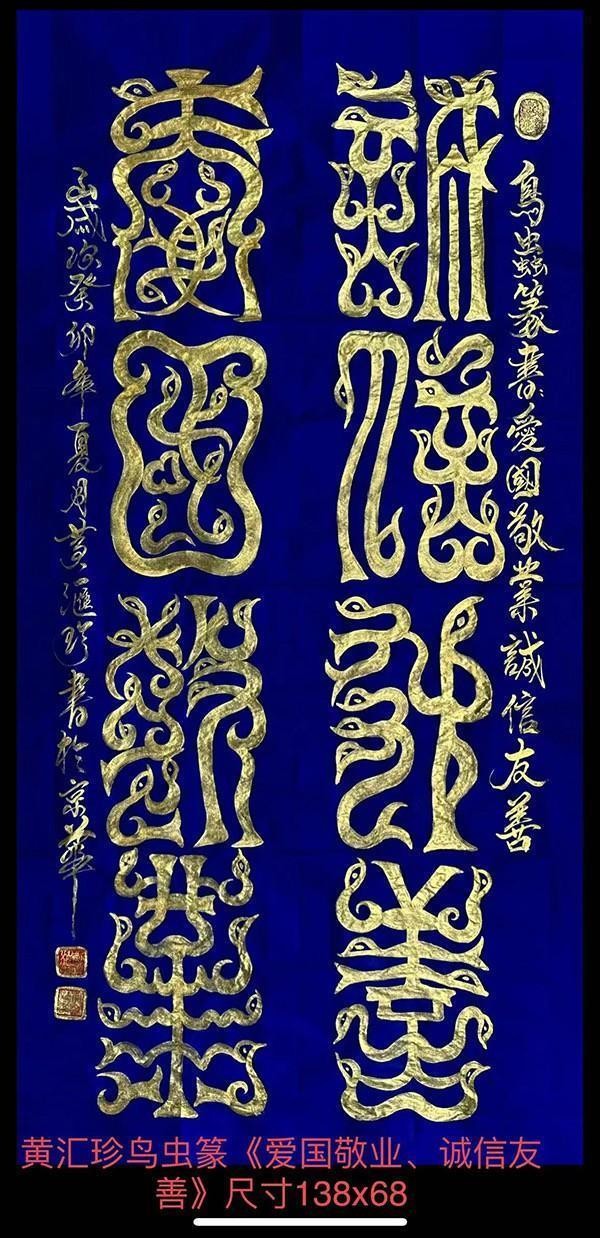 鳥蟲篆書愛國敬業誠信友善
誠信友善
愛國敬業
歲次癸卯年夏月黃滙珍書於京華
黄汇珍鸟虫篆《爱国敬业、诚信友
善》尺寸138x68